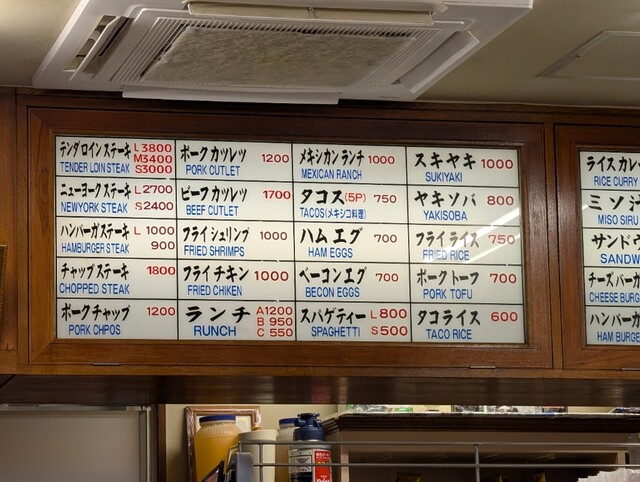 テンダロインステーキ L3800
M3400
TENDER LOIN STEAK S3000
ニューヨークステーキ L2700
NEWYORK STEAK S2400
ハンバーガステーキ L 1000
HAMBURGER STEAK 900
チャップステーキ 1800
CHOPPED STEAK
ポークチャップ 1200
PORK CHPOS
ポークカツレツ 1200
PORK CUTLET
ビーフカツレツ 1700
BEEF CUTLET
フライシュリンプ 1000
FRIED SHRIMPS
フライチキン 1000
FRIED CHIKEN
ランチ A1200
B 950
RUNCH C 550
メキシカンランチ 1000
MEXICAN RANCH
タコス(5P) 750
TACOS(メキシコ料理)
ハムエグ 700
HAM EGGS
ベーコンエグ 700
BECON EGGS
スパゲティー L800
SPAGHETTI S500
スキヤキ 1000
SUKIYAKI
ヤキソバ 800
YAKISOBA
フライライス 750
FRIED RICE
ポークトーフ 700
PORK TOFU
タコライス 600
TACO RICE
ライスカレ
RICE CURRY
ミソ汁
MISO SIRU
サンドウ
SANDW
チーズバーガ
CHEESE BURG
ハンバーガ
HAM BURGER